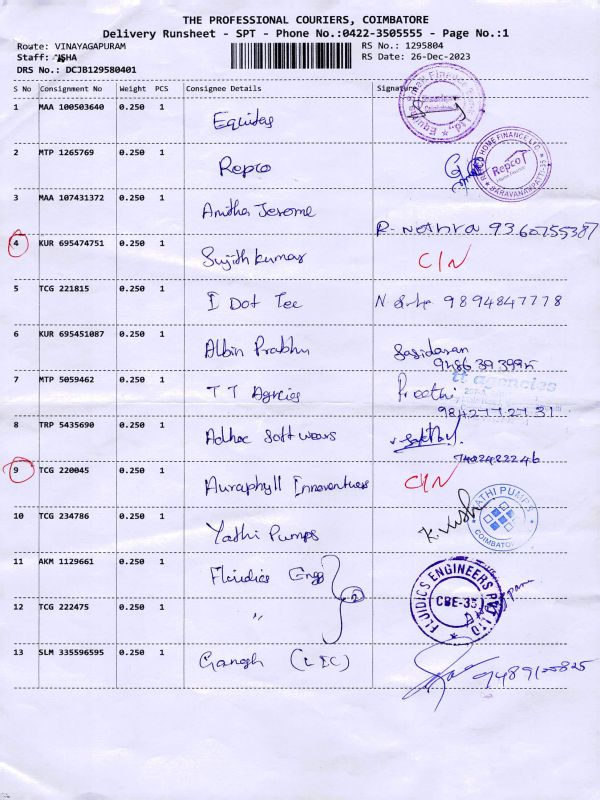 THE PROFESSIONAL COURIERS, COIMBATORE
Delivery Runsheet - SPT - Phone No.:0422-3505555 - Page No.:1
Route: VINAYAGAPURAM RS No.: 1295804
Staff: USHA RS Date: 26-Dec-2023
DRS No.: DCJB129580401
S No Consignment No Weight PCS Consignee Details Signature
1 MAA 100503640 0.250 1 Equitas
2 MTP 1265769 0.250 1 Repco
REPCO HOME FINANCE LTD. Repco Home Finance SARAVANAMPATTI-35
3 MAA 107431372 0.250 1 Anitha Jerome R. Nethra
4 KUR 695474751 0.250 1 Sujith kumar C/N
5 TCG 221815 0.250 1 I Dot Tec 9894847778
6 KUR 695451087 0.250 1 Albin Prabhu Sasidaran
7 MTP 5059462 0.250 1 T T Agncies Preethi
tt agencies
8 TRP 5435690 0.250 1 Adhoc Softwears
9 TCG 220045 0.250 1 Auraphyll Innoventures C/N
10 TCG 234786 0.250 1 Yathi Pumps
YATHI PUMPS COIMBATORE
11 AKM 1129661 0.250 1 Fluidics Engg
FLUIDICS ENGINEERS PVT LTD CBE-35
12 TCG 222475 0.250 1 " 2
13 SLM 335596595 0.250 1 Gangh (LIC)